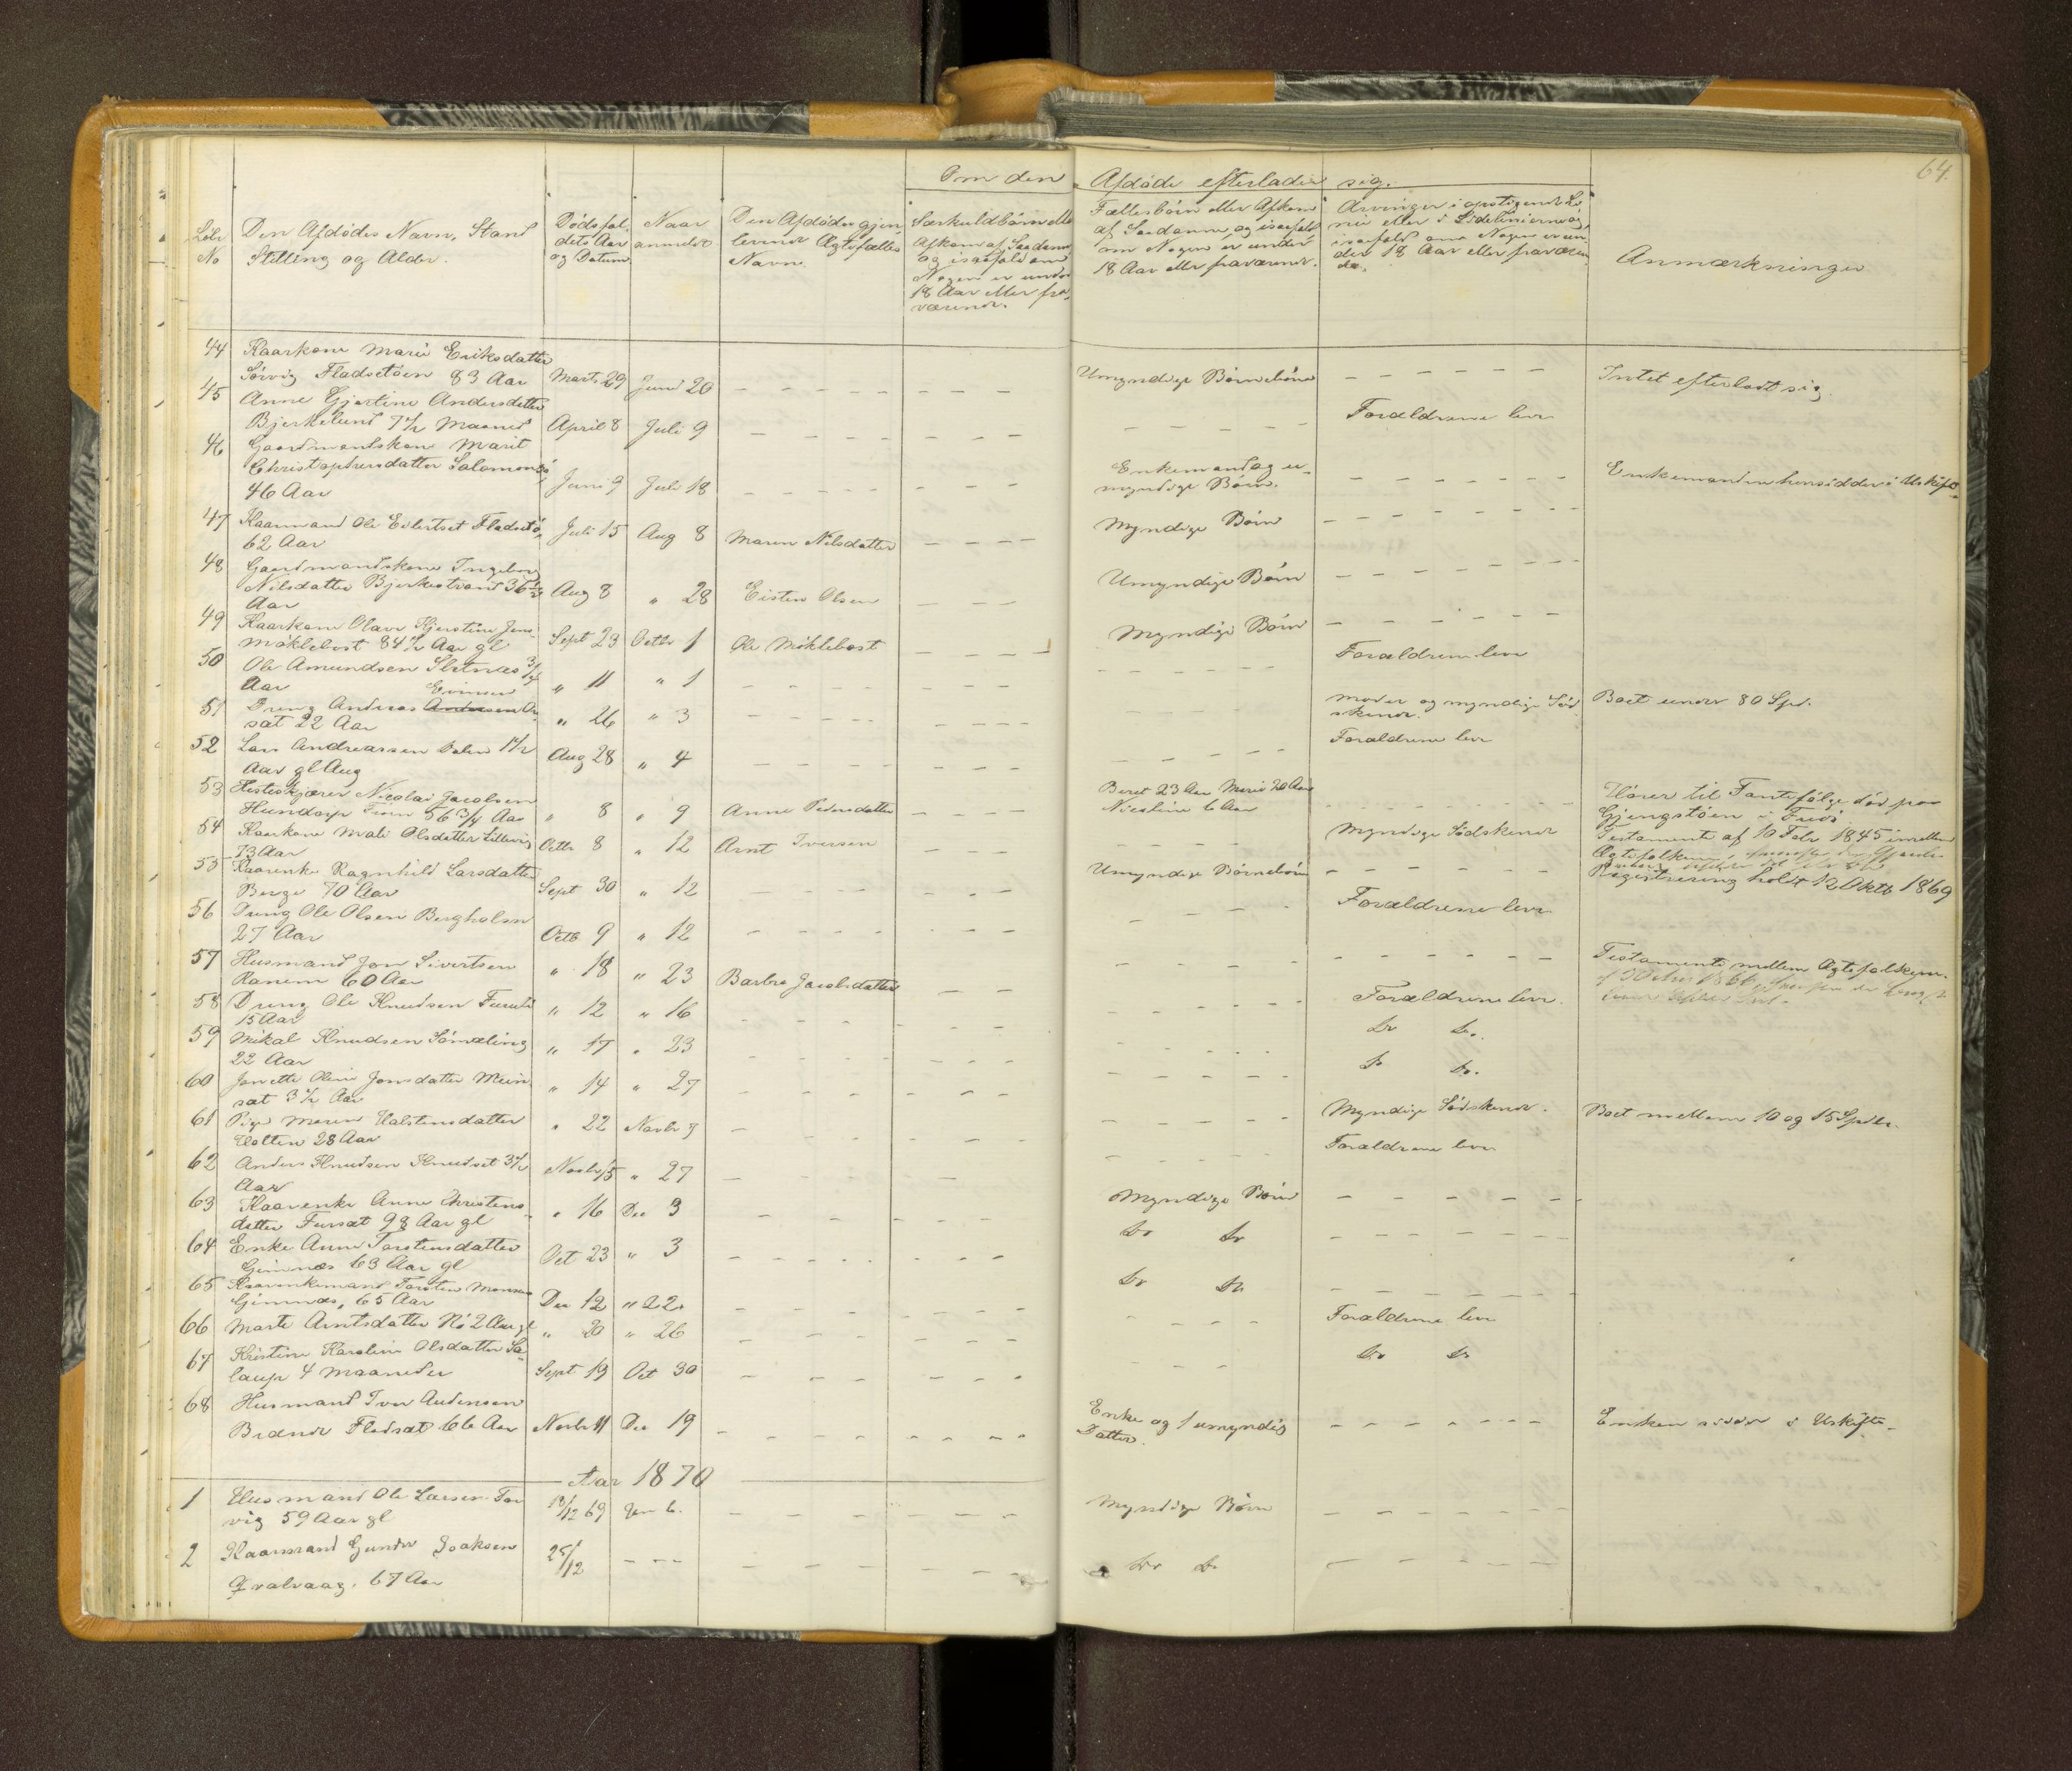 64.
Om den Afdøde efterlader sig.
Løbe No
Den Afdødes Navn, Stand Stilling og Alder.
Dødsfaldets Aar og Datum
Naar anmeldt
Den Afdødes gjenlevende Ægtefælles Navn
Særkuldbørn eller Afkom af Saadanne og isaafald om Nogen er under 18 Aar eller fraværende.
Fællesbørn eller Afkom af Saadanne og isaafald om Nogen er under 18 Aar eller fraværende.
Arvinger i opstigende Linie eller i Sidelinierne og isaafald om Nogen er under 18 Aar eller fraværende.
Anmærkninger
44 Kaarkone Marie Eriksdatter
Sørvig Fladsetøen 83 Aar Marts 29 Juni 20 Umyndige Børnebørn Intet efterladt sig.
45 Anne Gjertine Andersdatter
Bjerkelund 7 1/2 Maaned April 8 Juli 9 Forældrene lever
46 Gaardmandskone Marit
Christophersdatter Salomons
46 Aar Juni 9 Juli 18 Enkemand og umyndige Børn. Enkemanden hensidder i Uskifte
47 Kaarmand Ole Eilertset Fladsetø
62 Aar Juli 15 Aug 8 Maren Nilsdatter Myndige Børn
48 Gaardmandskone Ingeborg
Nilsdatter Bjerkestrand 36 1/2
Aar Aug 8 " 28 Eisten Olsen Umyndige Børn
49 Kaarkone Olava Kjerstine Jens
Møklebost 84 1/2 Aar gl Sept 23 Octbr 1 Ole Møklebost Myndige Børn
50 Ole Amundsen Sletnæs 3/4
Aar " 11 " 1 Forældrene lever
51 Dreng Andreas Andersen
sæt 22 Aar " 26 " 3 Moder og myndige Sødskende. Boet under 80 Spd.
52 Lars Andreassen Dalen 1 1/2
Aar gl Aug Aug 28 " 4 Forældrene lever
53 Hesteskjærer Nicolai Jacobsen
Hundorp 56 3/4 Aar " 8 " 9 Anne Pedersdatter Beret 23 Aar Marie 20 Aar
Nicoline 6 Aar Hører til Fantefølge død paa
Gjengstøen i Fredø
54 Kaarkone Mali Olsdatter Lillevig
73 Aar Octbr 8 " 12 Arnt Iversen Myndige Sødskende Testamente af 10 Febr 1845 imellem
Ægtefolkene,
55 Kaarenke Ragnhild Larsdatter
Berge 70 Aar Sept 30 " 12 Umyndige Børnebørn Registrering holdt 12 Oktb 1869
56 Dreng Ole Olsen Bergholm
27 Aar Octb 9 " 12 Forældrene lever
57 Husmand Jon Sivertsen
Ranem 60 Aar " 18 " 23 Barbro Jacobsdatter Testamente mellem Ægtefolkene
58 Dreng Ole Knudsen
15 Aar " 12 " 16 Forældrene lever.
59 Mikal Knudsen Sømæling
22 Aar " 17 " 23 Do Do.
60 Janette Oline Jonsdatter Mein
sæt 3 1/2 Aar " 14 " 27 Do Do.
61 Pige Maren Halstensdatter
Holten 28 Aar " 22 Novbr 9 Myndige Sødskende. Boet mellem 10 og 15 Spdlr.
62 Anders Knudsen Knudset 3 1/2
Aar Novbr 15 " 27 Forældrene lever
63 Kaarenke Anne Christens
datter Furset 98 Aar gl " 16 Dec 3 Myndige Børn
64 Enke Anne Torstensdatter
Gimnæs 63 Aar gl Oct 23 " 3 Do Do
65 Kaarenkemand Torsten Monsen
Gimnæs, 65 Aar Dec 12 " 22 Do Do
66 Marte Arntsdatter Nø 2 Aar gl " 20 " 26 Forældrene lever
67 Kristine Karoline Olsdatter Sa
laup 4 Maaneder Sept 19 Oct 30 Do Do
68 Husmand Iver Andersen
Brande Fladset 66 Aar Novbr 11 Dec 19 Enke og 1 umyndig
Datter. Enken sidder i Uskifte.
Aar 1870
1 Husmand Ole Larsen Tor
vig 59 Aar gl 19/12 69 Jan 6. Myndige Børn
2 Kaarmand Gunder Isaksen
Qvalvaag. 67 Aar 25/12 Do Do